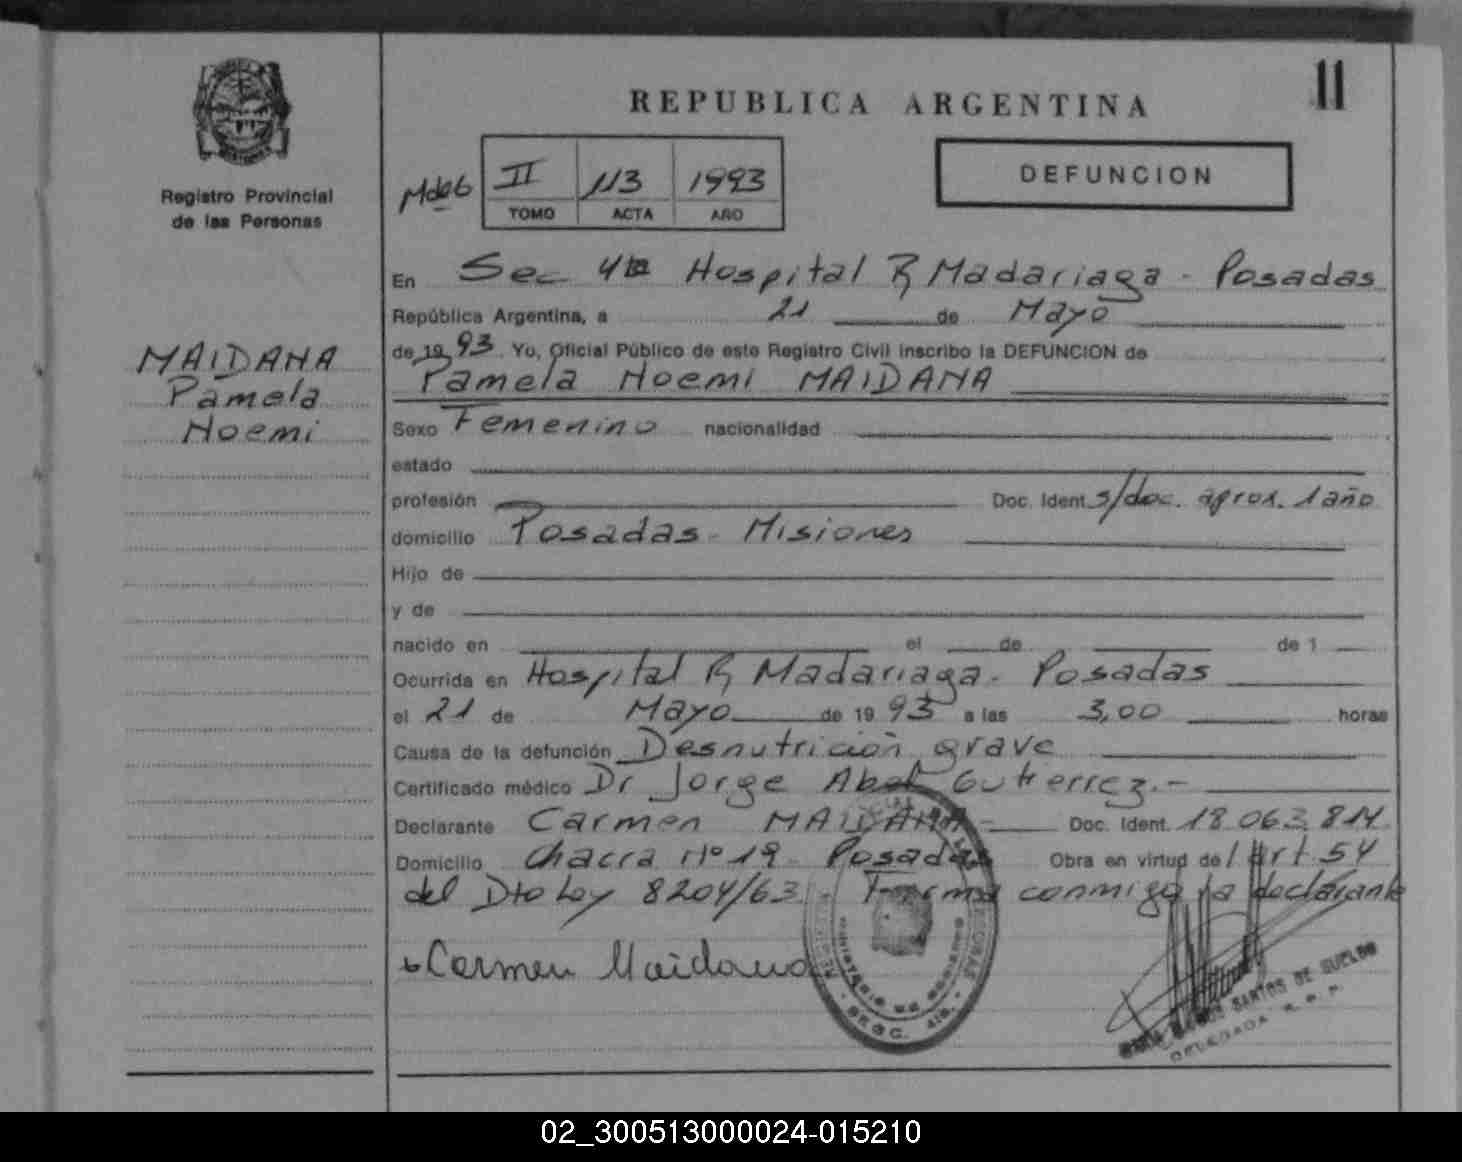 REPUBLICA ARGENTINA
11
Registro Provincial
de las Personas
II 113 1993
TOMO ACTA AÑO
DEFUNCION
MAIDANA
Pamela
Noemi
En Sec 4ta Hospital R Madariaga - Posadas
República Argentina, a 21 de Mayo
de 19 93. Yo, Oficial Público de este Registro Civil inscribo la DEFUNCION de
Pamela Noemi MAIDANA
Sexo Femenino nacionalidad
estado
profesión Doc. Ident. s/doc. aprox. 1 año
domicilio Posadas - Misiones
Hijo de
y de
nacido en el de de 1
Ocurrida en Hospital R Madariaga - Posadas
el 21 de Mayo de 19 93 a las 3,00 horas
Causa de la defunción Desnutrición grave
Certificado médico Dr Jorge Abel Gutierrez.-
Declarante Carmen MAIDANA - Doc. Ident. 18.063.814
Domicilio Chacra Nº 19 - Posadas Obra en virtud de l art. 54
del Dto Ley 8204/63. Firma conmigo la declarante
Carmen Maidana
MINISTERIO DE GOBIERNO
SECC. 4ta.
SANTOS DE SUELDO
DELEGADA R. P. P.
02_300513000024-015210